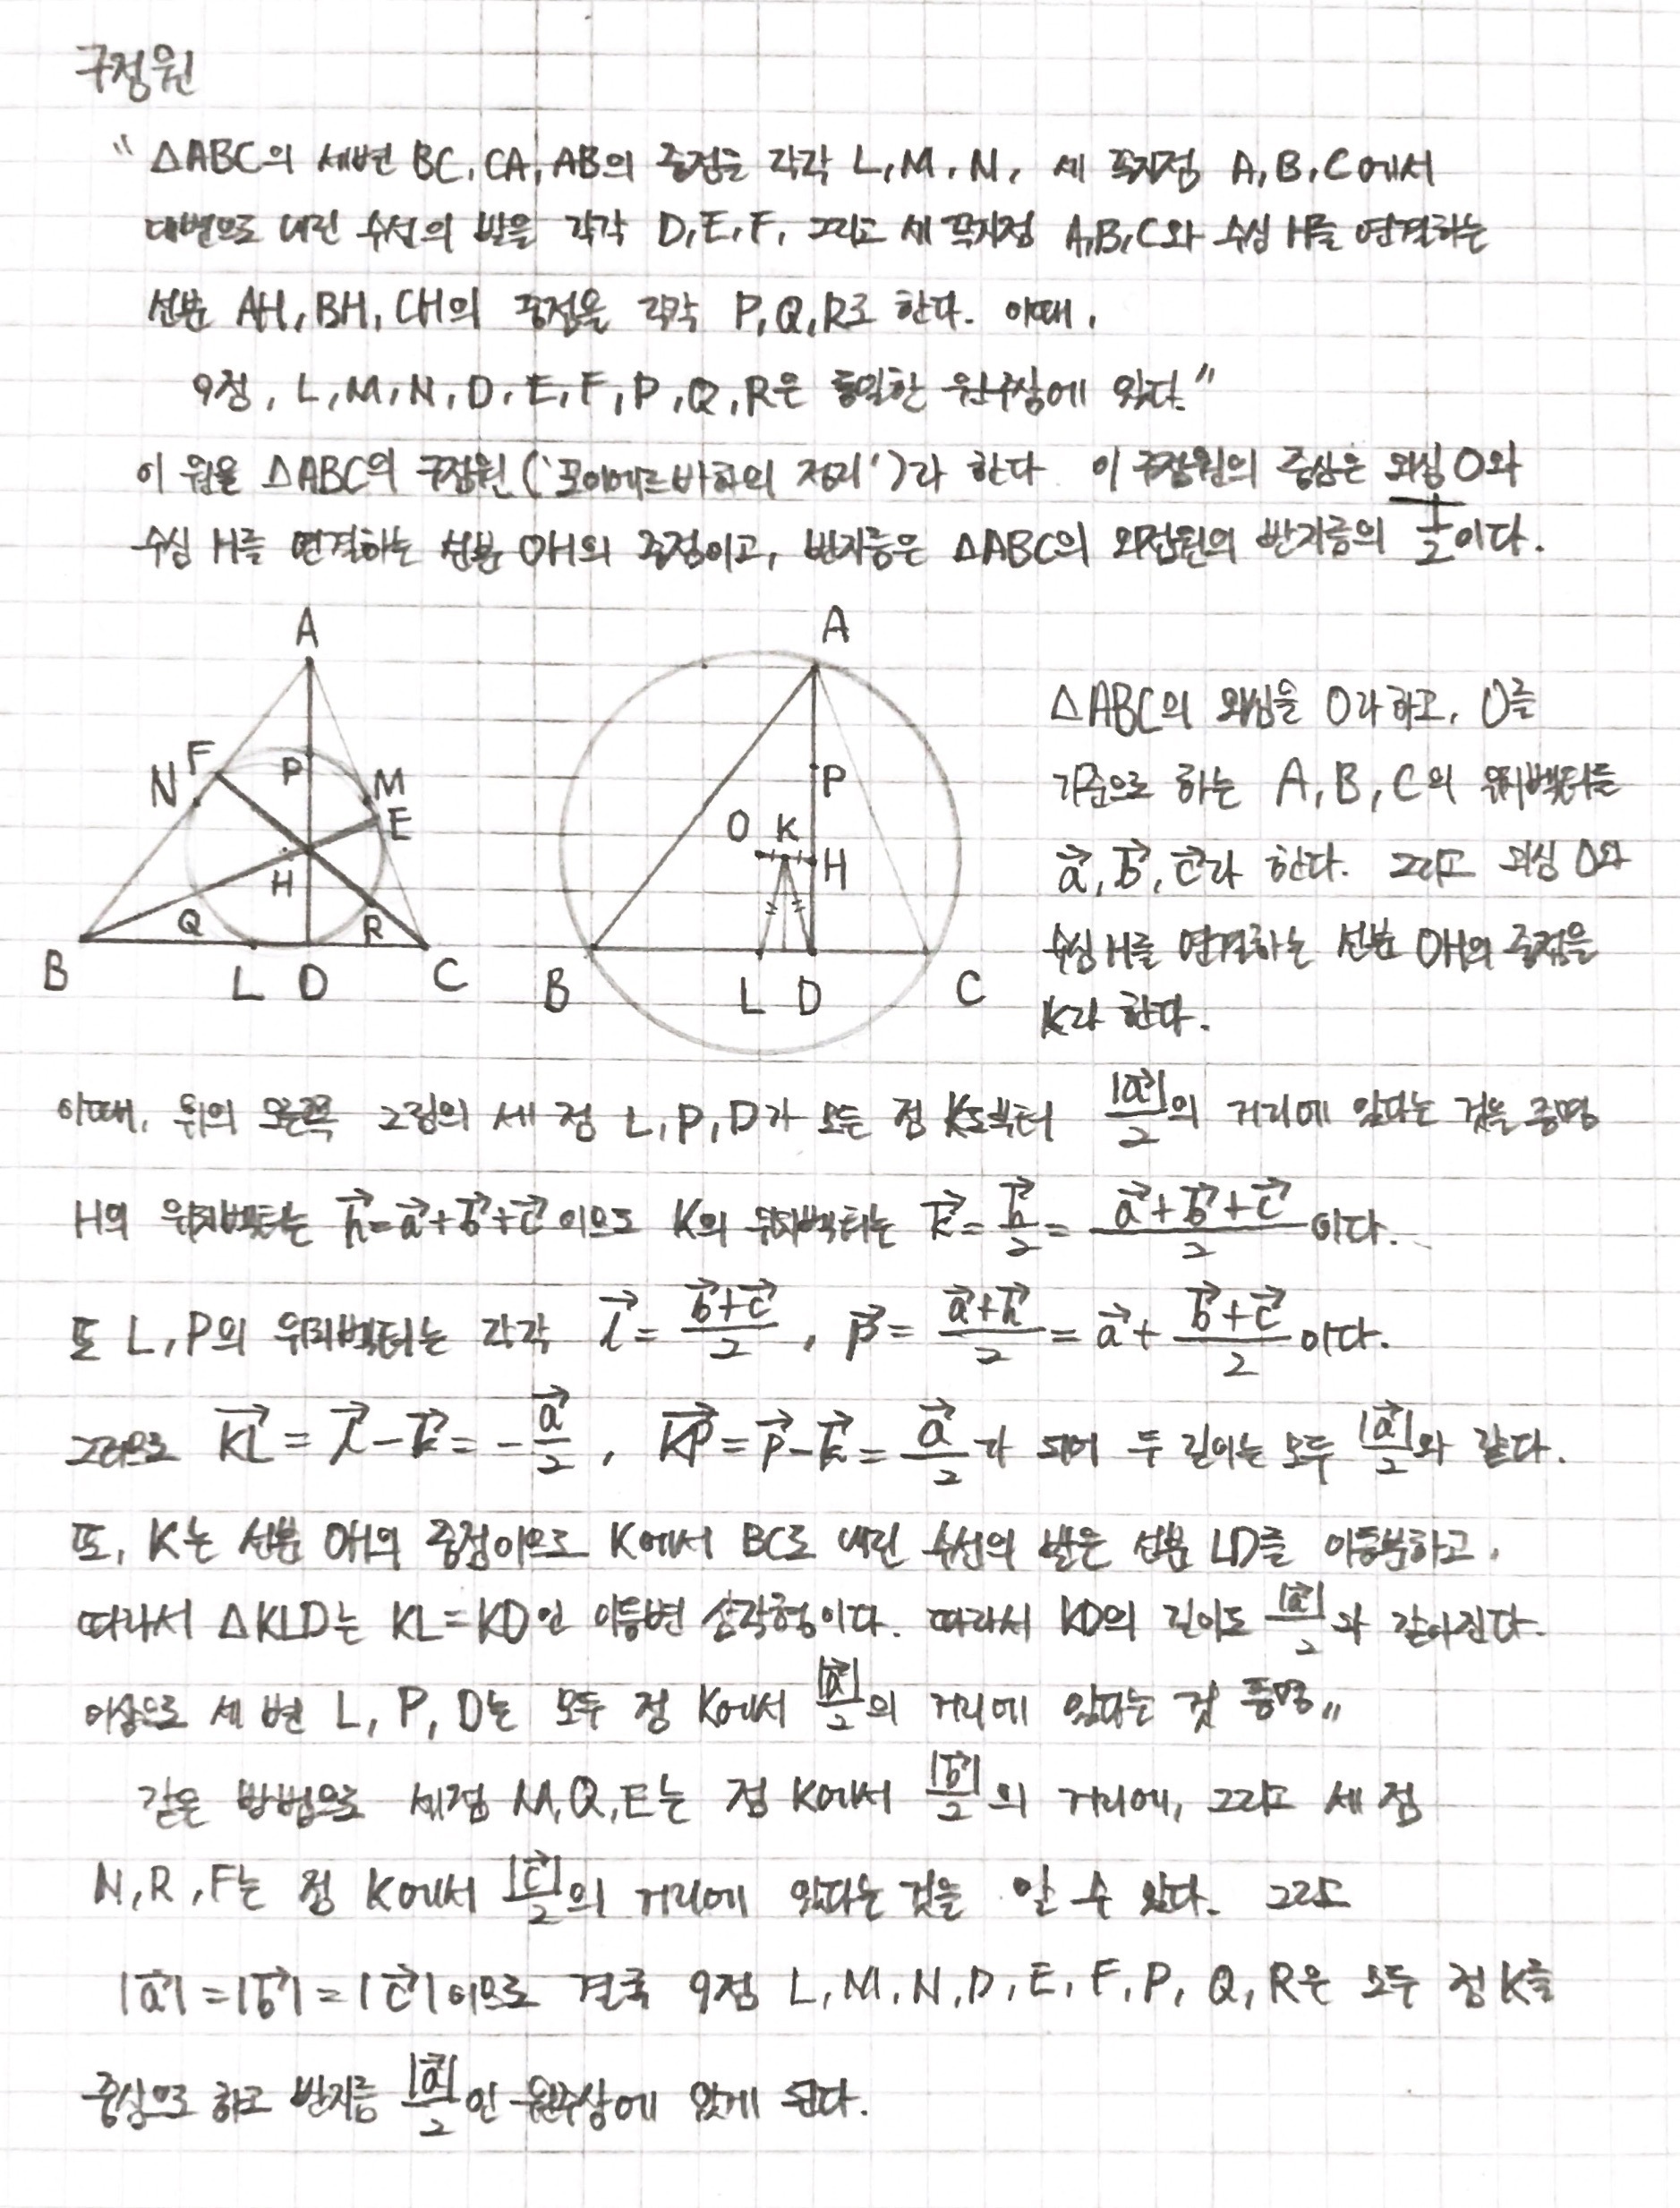 구점원
"△ABC의 세변 BC, CA, AB의 중점을 각각 L, M, N, 세 꼭지점 A, B, C에서
대변으로 내린 수선의 발을 각각 D, E, F, 그리고 세 꼭지점 A, B, C와 수심 H를 연결하는
선분 AH, BH, CH의 중점을 각각 P, Q, R로 한다. 이때,
9점, L, M, N, D, E, F, P, Q, R은 동일한 원주상에 있다."
이 원을 △ABC의 구점원('포이에르바하의 정리')라 한다 이 구점원의 중심은 외심 O와
수심 H를 연결하는 선분 OH의 중점이고, 반지름은 △ABC의 외접원의 반지름의 1/2이다.
A
N F P M E
H
Q R
B L D C
A
P
O K H
B L D C
△ABC의 외심을 O라하고, O를
기준으로 하는 A, B, C의 위치벡터를
a⃗, b⃗, c⃗라 한다. 그리고 외심 O와
수심 H를 연결하는 선분 OH의 중점을
K라 한다.
이때, 위의 오른쪽 그림의 세 점 L, P, D가 모두 점 K로부터 |a⃗|/2의 거리에 있다는 것을 증명
H의 위치벡터는 h⃗=a⃗+b⃗+c⃗이므로 K의 위치벡터는 k⃗=h⃗/2=(a⃗+b⃗+c⃗)/2이다.
또 L, P의 위치벡터는 각각 l⃗=(b⃗+c⃗)/2, p⃗=(a⃗+h⃗)/2=a⃗+(b⃗+c⃗)/2이다.
그러므로 KL⃗=l⃗-k⃗=-a⃗/2, KP⃗=p⃗-k⃗=a⃗/2가 되어 두 길이는 모두 |a⃗|/2와 같다.
또, K는 선분 OH의 중점이므로 K에서 BC로 내린 수선의 발은 선분 LD를 이등분하고,
따라서 △KLD는 KL=KD인 이등변 삼각형이다. 따라서 KD의 길이도 |a⃗|/2과 같아진다.
이상으로 세 변 L, P, D는 모두 점 K에서 |a⃗|/2의 거리에 있다는 것 증명〃
같은 방법으로 세점 M, Q, E는 점 K에서 |b⃗|/2의 거리에, 그리고 세 점
N, R, F는 점 K에서 |c⃗|/2의 거리에 있다는 것을 알 수 있다. 그리고
|a⃗|=|b⃗|=|c⃗|이므로 결국 9점 L, M, N, D, E, F, P, Q, R은 모두 점 K를
중심으로 하고 반지름 |a⃗|/2인 원주상에 있게 된다.